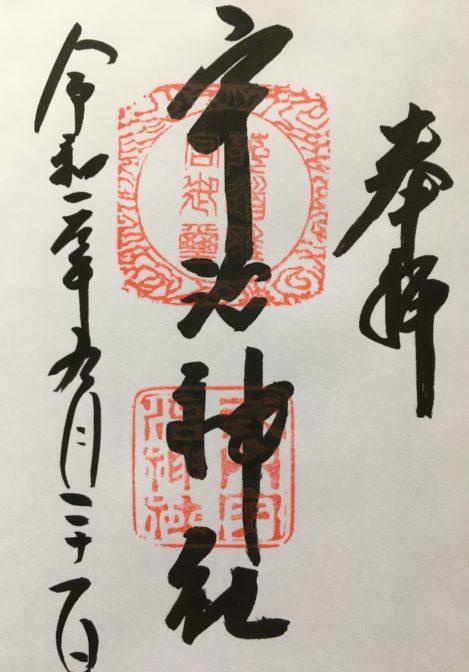 奉拝
宇治神社
令和二年九月二十一日